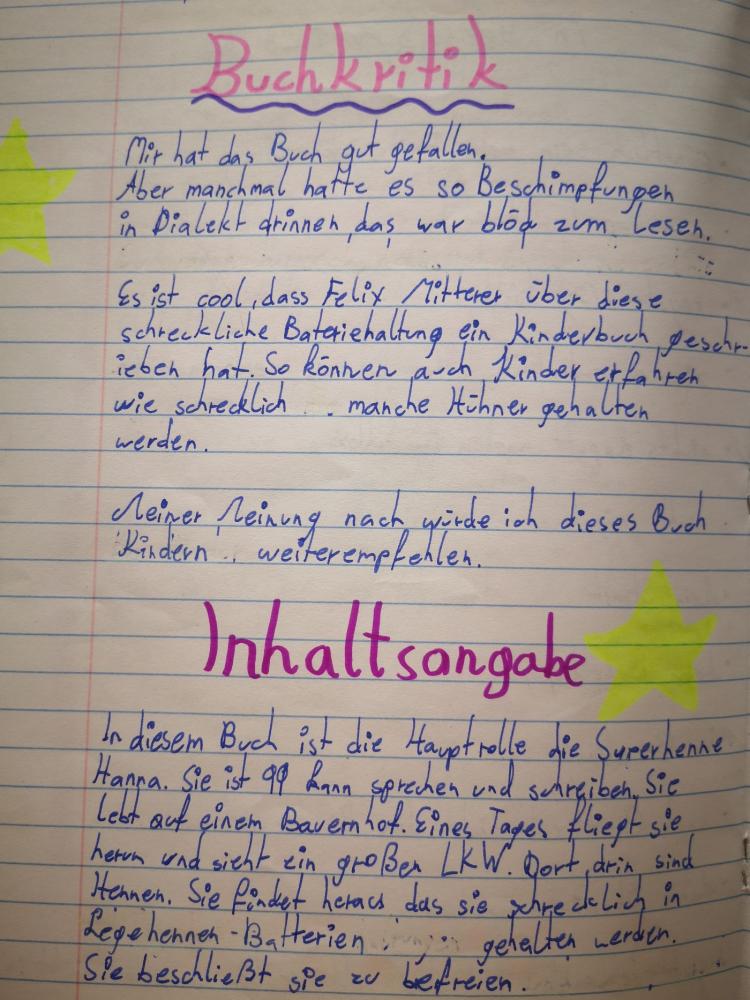 Buchkritik
Mir hat das Buch gut gefallen.
Aber manchmal hatte es so Beschimpfungen
in Dialekt drinnen, das war blöd zum Lesen.
Es ist cool, dass Felix Mitterer über diese
schreckliche Bateriehaltung ein Kinderbuch geschr-
ieben hat. So können auch Kinder erfahren
wie schrecklich manche Hühner gehalten
werden.
Meiner Meinung nach würde ich dieses Buch
Kindern weiterempfehlen.
Inhaltsangabe
In diesem Buch ist die Hauptrolle die Superhenne
Hanna. Sie ist 99 kann sprechen und schreiben. Sie
lebt auf einem Bauernhof. Eines Tages fliegt sie
herum und sieht ein großen LKW. Dort drin sind
Hennen. Sie findet heraus das sie schrecklich in
Legehennen-Batterien gehalten werden.
Sie beschließt sie zu befreien.